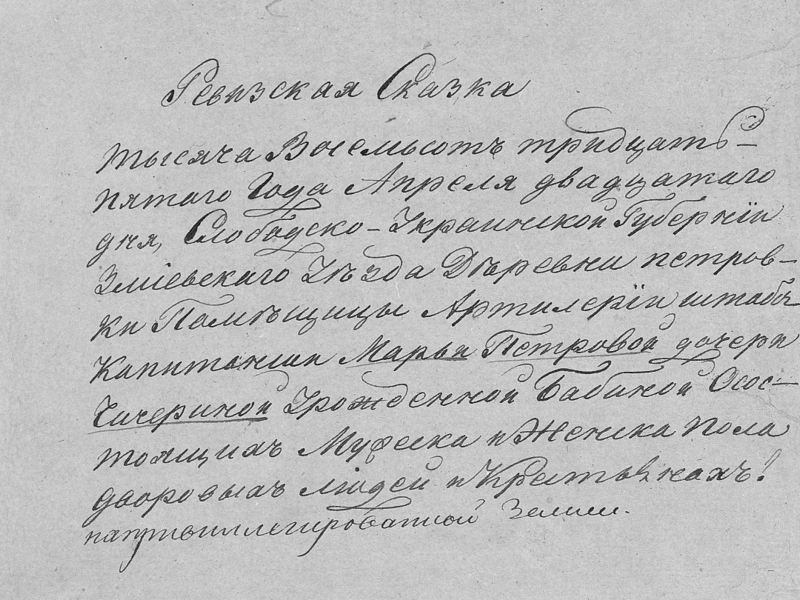 Ревизская Сказка
тысяча Восемьсотъ тридцать-
пятаго Года Апреля двадцатаго
дня, Слободско-Украинской Губернїи
Зміевскаго Уѣзда Дѣревни петров-
ки Помѣщицы Артилерїи штабъ
Капитанши Марьи Петровой дочери
Чичериной Урожденной Бабиной Осос-
тоящихъ Мужеска и Женска пола
дворовыхъ людей и Крестьянахъ!
напривиллегированной Земли.